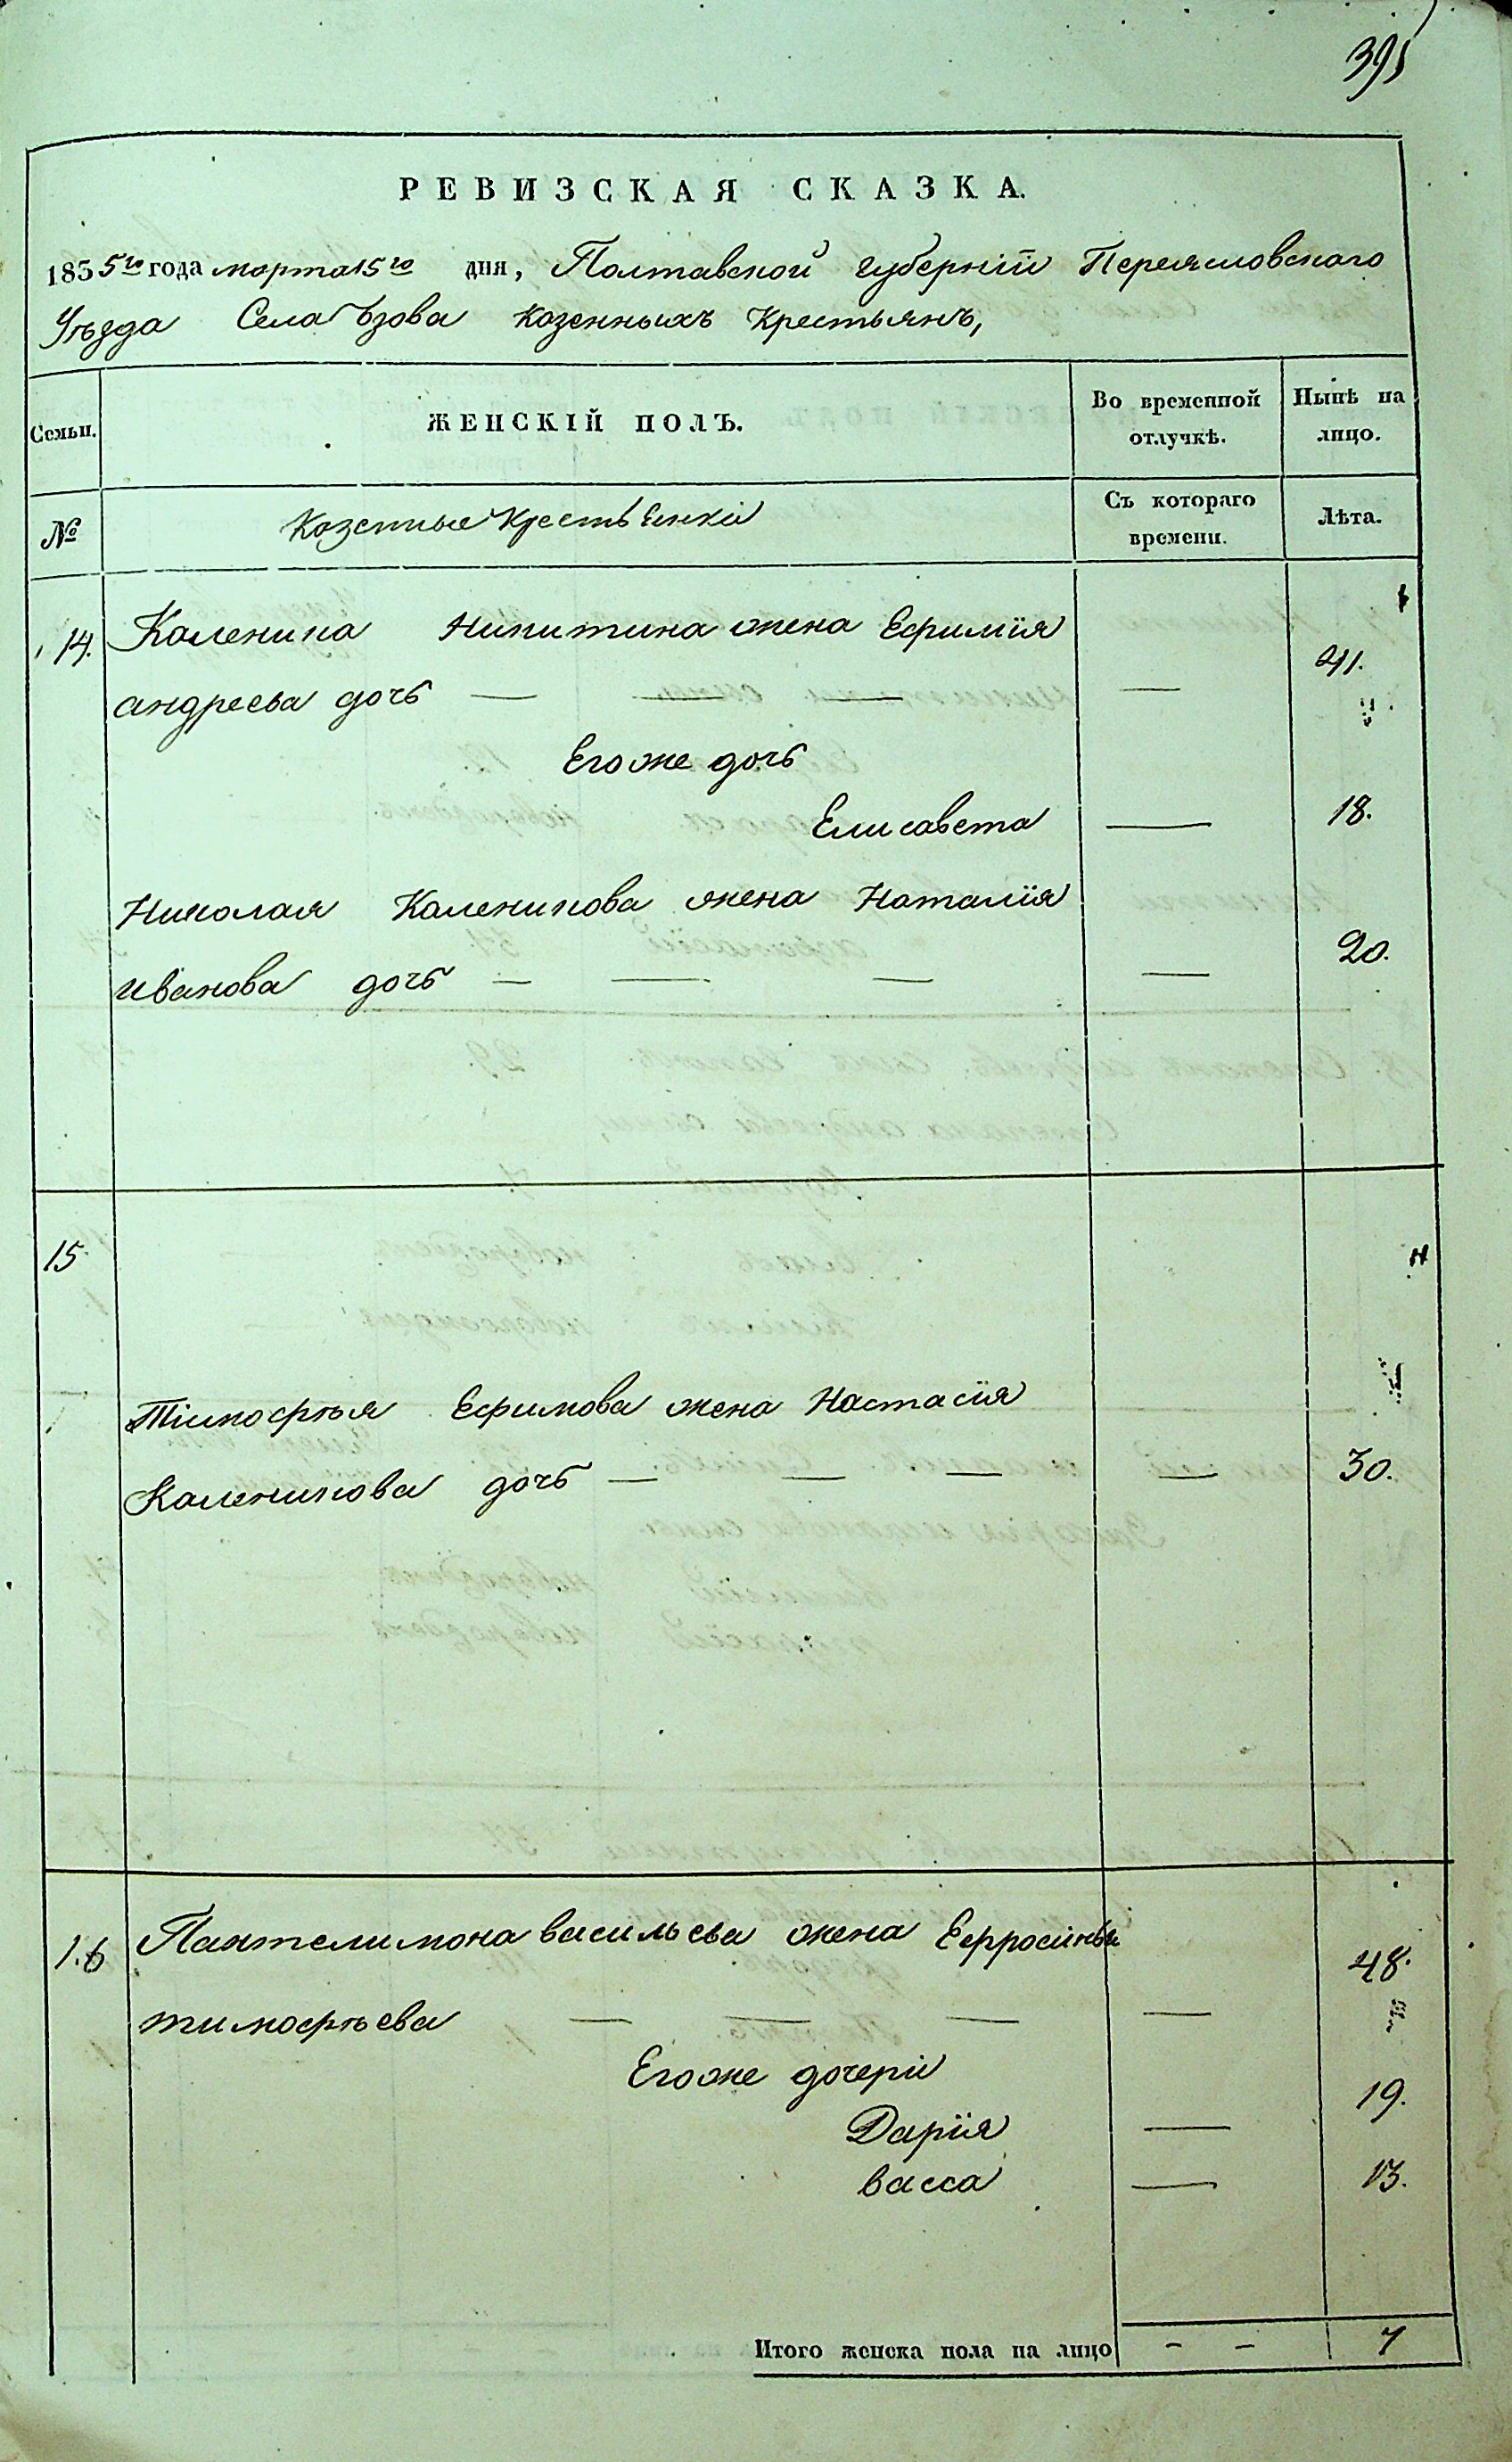 395
РЕВИЗСКАЯ СКАЗКА.
1835 5го года марта 15го дня, Полтавской губерніи Переясловского
Уѣзда Села Ѣзова Козенныхъ Крестьянъ,
Семьи. ЖЕНСКІЙ ПОЛЪ. Во временной отлучкѣ. Нынѣ на лицо.
№ Козенные Крестьенкі Съ котораго времени. Лѣта.
14. Каленика Никитина жена Ефимія
андреева дочь — — — — 41.
Егоже дочь
Елисавета — 18.
Николая Каленикова жена Наталія
иванова дочь — — — — 20.
15.
Тімофѣя Ефимова жена Настасія
Каленикова дочь — — — — 30.
16 Пантелимона васильева жена Ефросінья
тимофѣева — — — — 48.
Егоже дочері
Дарія — 19.
васса — 13.
Итого женска пола на лицо - - 7